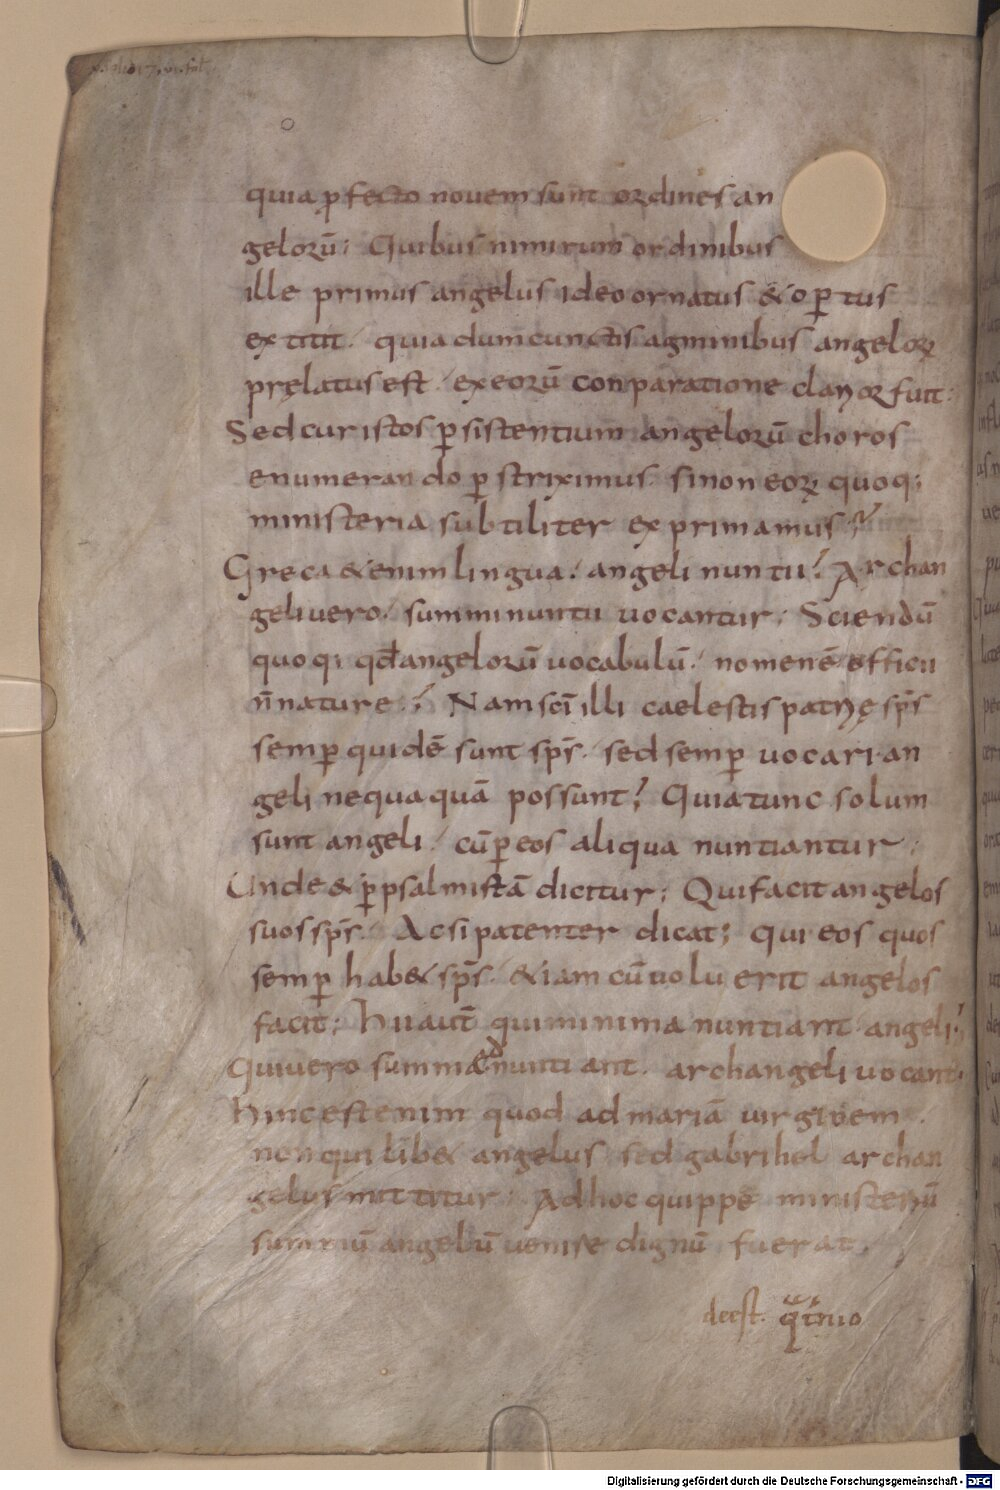 quia ꝓfecto novem sunt ordines an
gelorū; Quibus nimirum ordinibus
ille primus angelus ideo ornatus & oꝑtus
extitit. quia dum cunctis agminibus angeloꝝ
pręlatus est. ex eorū conparatione clarior fuit;
Sed cur istos ꝑsistentium angelorū choros
enumerando ꝑstriximus. si non eoꝝ quoq;
ministeria subtiliter exprimamus?
Greca & enim lingua. angeli nuntii. Archan
geli vero. summi nuntii vocantur; Sciendū
quoq; qđ angelorū vocabulū. nomen ē officii
n̄ nature. Nam sc̄i illi caelestis patrię sp̄s
semꝑ quidē sunt sp̄s. sed semꝑ vocari an
geli nequaquā possunt; Quia tunc solum
sunt angeli. cū ꝑ eos aliqua nuntiantur.
Unde & ꝑ psalmistā dicitur; Qui facit angelos
suos sp̄s. Ac si patenter dicat; qui eos quos
semꝑ hab& sp̄s. & iam cū voluerit angelos
facit; Hii aut̄ qui minima nuntiant angeli;
Qui vero summa adnuntiant. archangeli vocant.
Hinc est enim quod ad mariā virginem.
non quilib& angelus sed gabrihel archan
gelus mittitur; Ad hoc quippe ministeriū
summū angelū venire dignū fuerat.
deest. qͣt̄nio
Digitalisierung gefördert durch die Deutsche Forschungsgemeinschaft - DFG